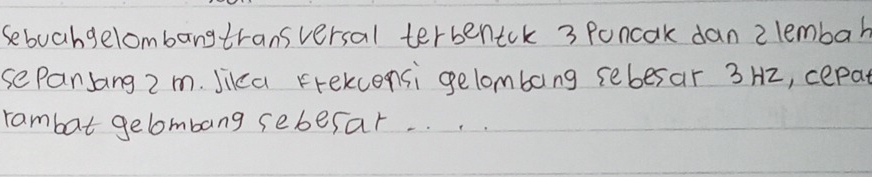 Sebuah gelombang transversal terbentuk 3 Puncak dan 2 lembah
sepanjang 2 m. Jika Frekuensi gelombang sebesar 3 Hz, cepat
rambat gelombang sebesar . . . .